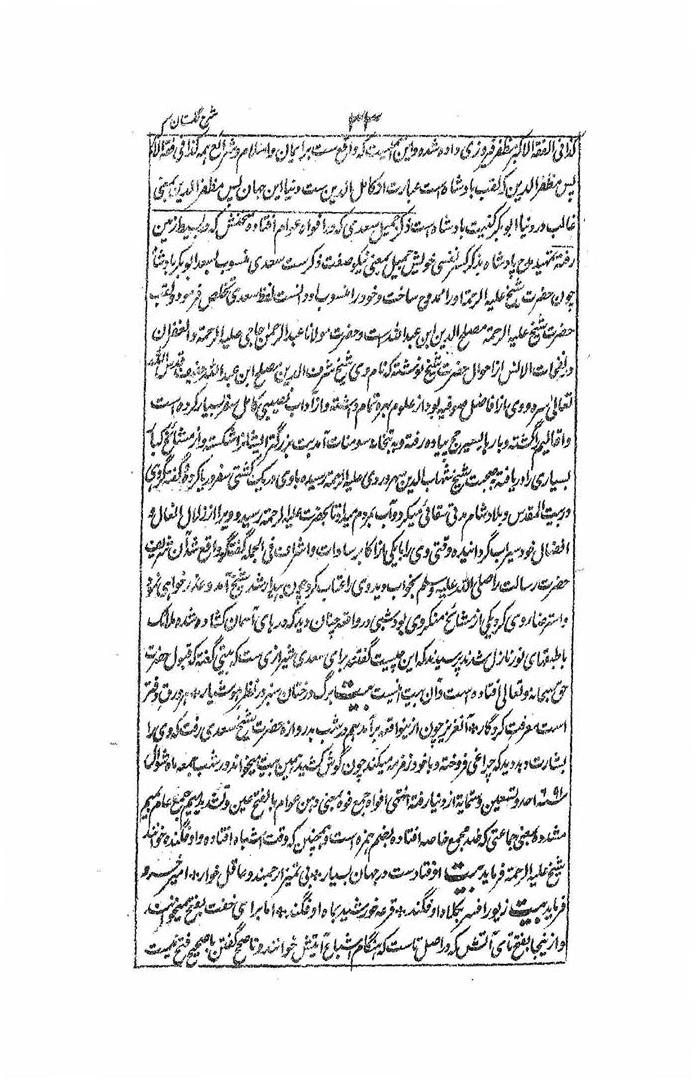 ۳۳
شرح گلستان
کذا فی الفقه الاکبر مظفر فیروزی داده شده و این بمعنیست که واقع ست بر ایمان و اسلام و شرائع همه کذا فی فقه الاکبر
پس مظفر الدین که لقب بادشاه است عبارت از کامل الدین ست و دنیا این جهان پس مظفر الدین بمعنی
غالب در دنیا ابوبکر کنیت بادشاه است ذکر جمیل سعدی که در افواه عوام افتاده و سخنش که در بسیط زمین
رفته تمهید مدح پادشاه بذکر کسر نفسی خویش جمیل بمعنی نیکو صفت ذکر ست سعدی منسوب بسعد ابوبکر بادشاه
چون حضرت شیخ علیه الرحمة او را ممدوح ساخت و خود را منسوب او دانست لفظ سعدی تخلص فرمود و لقب
حضرت شیخ علیه الرحمه مصلح الدین ابن عبدالله ست و حضرت مولانا عبدالرحمن جامی علیه الرحمة والغفران
در نفحات الانس از احوال حضرت شیخ نوشته که نام وی شیخ شرف الدین مصلح ابن عبدالله خفیف قدس الله
تعالی سره و وی از افاضل صوفیه بود از علوم بهره تمام داشته و از آداب نصیبی کامل سفر بسیار کرده است
و اقالیم را گشته و بارها بسفر حج پیاده رفته و به بتخانه سومنات آمد بت بزرگتر ایشانرا شکسته و از مشائخ کبار
بسیاری را دریافته بصحبت شیخ شهاب الدین سهروردی علیه الرحمة رسیده با وی در یک کشتی سفر دریا کرده و گفته که وی
در بیت المقدس و بلاد شام مدتی سقائی میکرد و آب بمردم میداد تا بخضر علیه الرحمه رسید و ویرا از زلال انعام و
افضال خود سیراب گردانیده وقتی وی را با یکی از اکابر سادات و اشراف فی الجمله گفتگو واقع شد آن شریف
حضرت رسالت را صلی الله علیه وسلم بخواب دید وی را عتاب کرد چون بیدار شد پیش شیخ آمد و عذر خواهی نمود
و استرضا وی کرد یکی از مشائخ منکر وی بود شبی در واقعه چنان دید که درهای آسمان کشاده شده ملائک
با طبقهای نور نازل شدند پرسید که این چیست گفتند برای سعدی شیرازی ست که بیتی گفته که قبول حضرت
حق سبحانه و تعالی افتاده است و آن بیت اینست بیت برگ درختان سبز در نظر هوشیار٭ هر ورق دفتر
است معرفت کردگار٭ آن عزیز چون از واقعه برآمد هم در شب بدروازه حضرت شیخ سعدی رفت که وی را
بشارت دهد دید که چراغی فروخته و با خود زمزمه میکند چون گوش کشید همین بیت میخواند در شب جمعه ماه شوال
۶۹۱ سنه احدی و تسعین و ستمایة از دنیا رفته انتهی افواه جمع فوه بمعنی دهن عوام بالفتح عین و تشدید میم جمع عام بمیم
مشدده بمعنی جماعتی که ضد جمع خاصه افتاده بضم همزه است و همچنین که وقت اشباه افتاده و اوفگنده خوانند
شیخ علیه الرحمة فرماید بیت اوفتادست در جهان بسیار٭ بی تمیز ارجمند و عاقل خوار٭ امیر خسرو
فرماید بیت زیور افسر بکلاه اوفگند٭ قرعه خورشید بماه اوفگند٭ اما برای خفت بفتح همیخوانند
و از اینجا بفتح تای آتش که در اصل تاست که هنگام اشباع آتیش خوانند و تاصح گفتن باصحیح فتح نیست